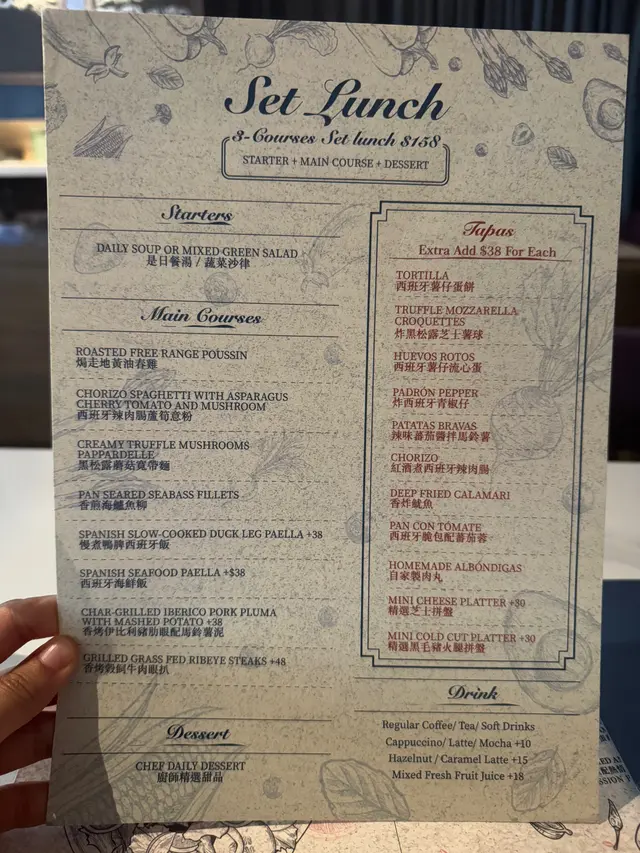 Set Lunch
3-Courses Set lunch $158
STARTER + MAIN COURSE + DESSERT
Starters
DAILY SOUP OR MIXED GREEN SALAD
是日餐湯 / 蔬菜沙律
Main Courses
ROASTED FREE RANGE POUSSIN
焗走地黃油春雞
CHORIZO SPAGHETTI WITH ASPARAGUS
CHERRY TOMATO AND MUSHROOM
西班牙辣肉腸蘆筍意粉
CREAMY TRUFFLE MUSHROOMS
PAPPARDELLE
黑松露蘑菇寬帶麵
PAN SEARED SEABASS FILLETS
香煎海鱸魚柳
SPANISH SLOW-COOKED DUCK LEG PAELLA +38
慢煮鴨髀西班牙飯
SPANISH SEAFOOD PAELLA +$38
西班牙海鮮飯
CHAR-GRILLED IBERICO PORK PLUMA
WITH MASHED POTATO +38
香烤伊比利豬肋眼配馬鈴薯泥
GRILLED GRASS FED RIBEYE STEAKS +48
香烤穀飼牛肉眼扒
Dessert
CHEF DAILY DESSERT
廚師精選甜品
Tapas
Extra Add $38 For Each
TORTILLA
西班牙薯仔蛋餅
TRUFFLE MOZZARELLA
CROQUETTES
炸黑松露芝士薯球
HUEVOS ROTOS
西班牙薯仔流心蛋
PADRÓN PEPPER
炸西班牙青椒仔
PATATAS BRAVAS
辣味蕃茄醬拌馬鈴薯
CHORIZO
紅酒煮西班牙辣肉腸
DEEP FRIED CALAMARI
香炸魷魚
PAN CON TÓMATE
西班牙脆包配蕃茄蓉
HOMEMADE ALBÓNDIGAS
自家製肉丸
MINI CHEESE PLATTER +30
精選芝士拼盤
MINI COLD CUT PLATTER +30
精選黑毛豬火腿拼盤
Drink
Regular Coffee/ Tea/ Soft Drinks
Cappuccino/ Latte/ Mocha +10
Hazelnut / Caramel Latte +15
Mixed Fresh Fruit Juice +18